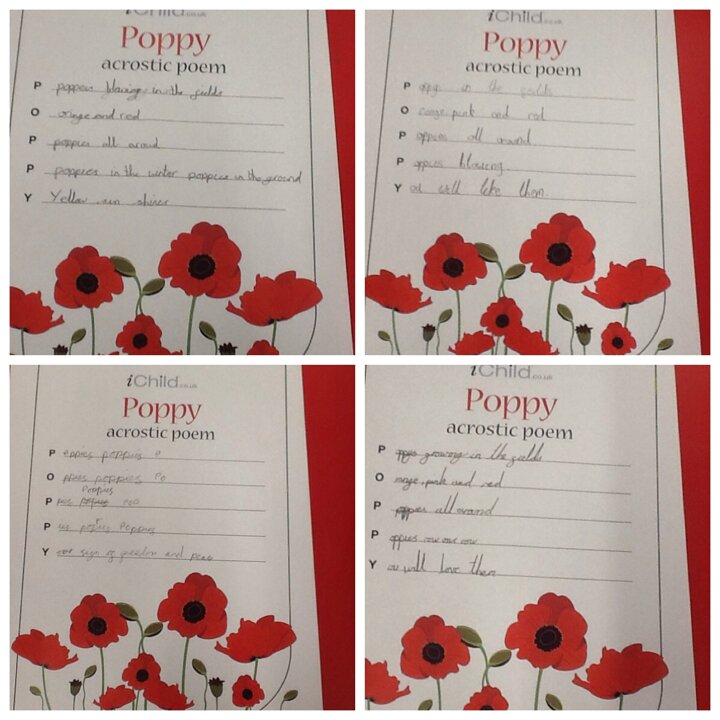 iChild.co.uk
Poppy
acrostic poem
P poppies blowing in the feilds
O orange and red
P poppies all around
P poppies in the winter poppies in the ground
Y Yellow sun shines
iChild.co.uk
Poppy
acrostic poem
P oppys in the feilds
O range pink and red
P oppies all around
P oppies blowing
Y ou will like them.
iChild.co.uk
Poppy
acrostic poem
P oppies poppies
O ppies poppies
Poppies
P
P Poppies
Y our sign of freedom and peace
iChild.co.uk
Poppy
acrostic poem
P oppys growing in the feilds
O range, pink and red
P oppies all around
P oppies
Y ou will love them